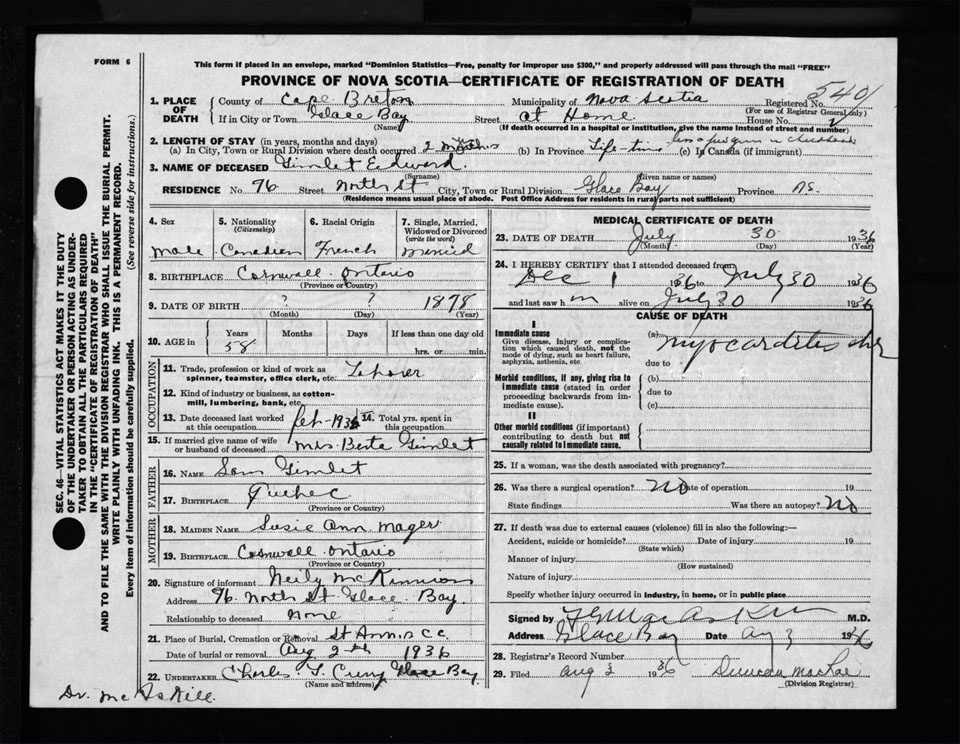 FORM 6
This form if placed in an envelope, marked "Dominion Statistics—Free, penalty for improper use $300," and properly addressed will pass through the mail "FREE"
PROVINCE OF NOVA SCOTIA—CERTIFICATE OF REGISTRATION OF DEATH
540
1. PLACE OF DEATH
County of Cape Breton Municipality of Nova Scotia Registered No.
(For use of Registrar General only)
If in City or Town Glace Bay Street at Home House No.
(Name) (If death occurred in a hospital or institution, give the name instead of street and number)
2. LENGTH OF STAY (in years, months and days)
(a) In City, Town or Rural Division where death occurred 2 months (b) In Province Life-time less a few years in childhood (c) In Canada (if immigrant)
3. NAME OF DECEASED Gimlet Edward.
(Surname) (Given name or names)
RESIDENCE No. 96 Street North St City, Town or Rural Division Glace Bay Province NS.
(Residence means usual place of abode. Post Office Address for residents in rural parts not sufficient)
4. Sex
male
5. Nationality
(Citizenship)
Canadian
6. Racial Origin
French
7. Single, Married, Widowed or Divorced
(write the word)
Married
8. BIRTHPLACE Cornwall Ontario
(Province or Country)
9. DATE OF BIRTH ? ? 1878
(Month) (Day) (Year)
10. AGE in
Years Months Days If less than one day old
58 hrs. or min.
OCCUPATION
11. Trade, profession or kind of work as
spinner, teamster, office clerk, etc.
12. Kind of industry or business, as cotton-
mill, lumbering, bank, etc.
13. Date deceased last worked at this occupation. Feb-1936
14. Total yrs. spent in this occupation.
15. If married give name of wife or husband of deceased Mrs Berta Gimlet
FATHER
16. NAME Sam Gimlet
17. BIRTHPLACE Quebec
(Province or Country)
MOTHER
18. MAIDEN NAME Susie Ann Mager
19. BIRTHPLACE Cornwall Ontario
(Province or Country)
20. Signature of informant Neily McKinnon
Address 96 North St Glace Bay
Relationship to deceased None
21. Place of Burial, Cremation or Removal St Ann's CC
Date of burial or removal Aug 2nd 1936
22. UNDERTAKER Charles Curry Glace Bay
(Name and address)
MEDICAL CERTIFICATE OF DEATH
23. DATE OF DEATH July 30 1936
(Month) (Day) (Year)
24. I HEREBY CERTIFY that I attended deceased from
Dec 1 1936 to July 30 1936
and last saw him alive on July 30 1936
CAUSE OF DEATH
I
Immediate cause
Give disease, injury or complication which caused death, not the mode of dying, such as heart failure, asphyxia, asthenia, etc
(a) myocarditis chr
due to
Morbid conditions, if any, giving rise to immediate cause (stated in order proceeding backwards from immediate cause).
(b)
due to
(c)
II
Other morbid conditions (if important) contributing to death but not causally related to immediate cause.
25. If a woman, was the death associated with pregnancy?
26. Was there a surgical operation? No Date of operation 19
State findings Was there an autopsy? No
27. If death was due to external causes (violence) fill in also the following:—
Accident, suicide or homicide? Date of injury 19
(State which)
Manner of injury
(How sustained)
Nature of injury
Specify whether injury occurred in industry, in home, or in public place
Signed by M.D.
Address Glace Bay Date Aug 3 1936
28. Registrar's Record Number
29. Filed Aug 3 1936 Duncan MacRae
(Division Registrar)
Dr. McAskill.
SEC. 46— VITAL STATISTICS ACT MAKES IT THE DUTY
OF THE UNDERTAKER OR PERSON ACTING AS UNDER-
TAKER TO OBTAIN ALL THE PARTICULARS REQUIRED
IN THE "CERTIFICATE OF REGISTRATION OF DEATH"
AND TO FILE THE SAME WITH THE DIVISION REGISTRAR WHO SHALL ISSUE THE BURIAL PERMIT.
WRITE PLAINLY WITH UNFADING INK. THIS IS A PERMANENT RECORD.
Every item of information should be carefully supplied. (See reverse side for instructions.)